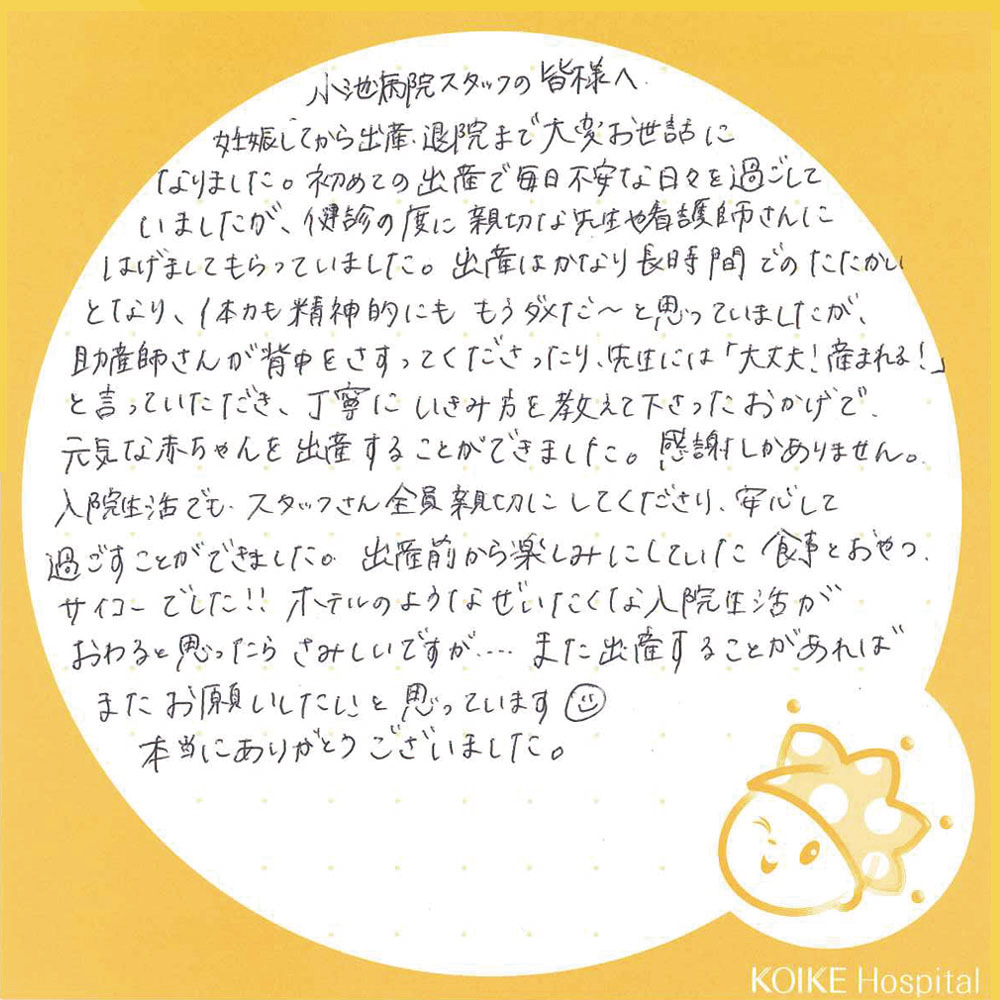 小池病院スタッフの皆様へ
妊娠してから出産、退院まで大変お世話に
なりました。初めての出産で毎日不安な日々を過ごして
いましたが、健診の度に親切な先生や看護師さんに
はげましてもらっていました。出産はかなり長時間でのたたかい
となり、体力も精神的にももうダメだ〜と思っていましたが、
助産師さんが背中をさすってくださったり、先生には「大丈夫!産まれる!」
と言っていただき、丁寧にいきみ方を教えて下さったおかげで、
元気な赤ちゃんを出産することができました。感謝しかありません。
入院生活でも、スタッフさん全員親切にしてくださり、安心して
過ごすことができました。出産前から楽しみにしていた食事とおやつ、
サイコーでした!!ホテルのようなぜいたくな入院生活が
おわると思ったらさみしいですが‥‥また出産することがあれば
またお願いしたいと思っています☺
本当にありがとうございました。
KOIKE Hospital